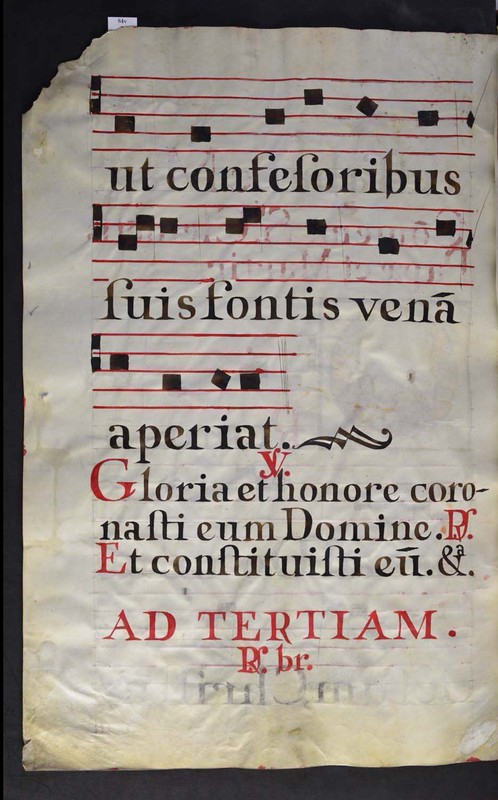 ut confeſoribus
ſuis fontis venā
aperiat.
℣.
Gloria et honore coro-
naſti eum Domine. ℟.
Et conſtituiſti eū. &ª.
AD TERTIAM.
℟. br.